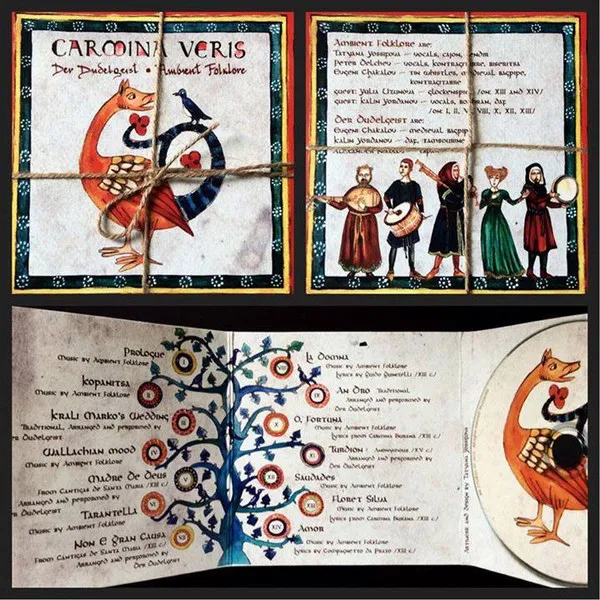 CARMINA VERIS
Der Dudelgeist • Ambient Folklore
Ambient Folklore are:
Tatyana Yossifova – vocals, cajon,
Peter Delchev – vocals, kontragitarre, biseritsa
Eugeni Chakalov – tin whistles, medieval bagpipe,
kontragitarre
guest: Yulia Uzunova – glockenspiel /on: XIII and XIV/
guest: Kalin Yordanov – vocals, bodhran, daf,
/on: I, II, VIII, X, XII, XIII/
Der Dudelgeist are:
Eugeni Chakalov – medieval bagpipe
Kalin Yordanov – daf, tambourine
Prologue
Music by Ambient Folklore
I
Kopanitsa
Music by Ambient Folklore
II
Krali Marko's Wedding
Traditional, Arranged and performed by
Der Dudelgeist
III
Wallachian Mood
Music by Ambient Folklore
IV
Madre de Deus
From Cantigas de Santa Maria /XIII c./
Arranged and performed by
Der Dudelgeist
V
Tarantella
Music by Ambient Folklore
VI
Non e Gran Causa
From Cantigas de Santa Maria /XIII c./
Arranged and performed by
Der Dudelgeist
VII
La Donna
Music by Ambient Folklore
Lyrics by Guido Guinizelli /XIII c./
VIII
An Dro Traditional,
Arranged and performed by
Der Dudelgeist
IX
O, Fortuna
Music by Ambient Folklore
Lyrics from Carmina Burana /XIII c./
X
Turdion Anonymous /XV c./
Arranged and performed by
Der Dudelgeist
XI
Saudades
Music by Ambient Folklore
XII
Floret Silva
Music by Ambient Folklore
Lyrics from Carmina Burana /XIII c./
XIII
Amor
Music by Ambient Folklore
Lyrics by Compagnetto da Prato /XIII c./
XIV
Artwork and design by Tatyana Yossifova